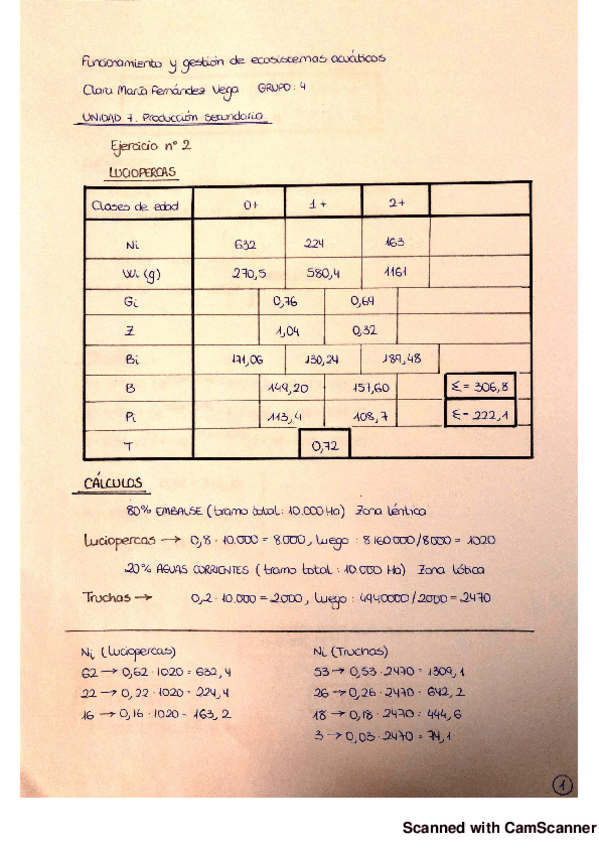 Funcionamiento y gestión de ecosistemas acuáticos
Clara María Fernández Vega GRUPO: 4
UNIDAD 7. Producción secundaria
Ejercicio nº 2
LUCIOPERCAS
Clases de edad 0+ 1+ 2+
Ni 632 224 163
Wi (g) 270,5 580,4 1161
Gi 0,76 0,69
Z 1,04 0,32
Bi 171,06 130,24 189,48
B 149,20 157,60 Σ = 306,8
Pi 113,4 108,7 Σ = 222,1
T 0,72
CÁLCULOS
80% EMBALSE (tramo total: 10.000 Ha) Zona léntica
Luciopercas → 0,8 · 10.000 = 8.000, luego: 8160000/8000 = 1020
20% AGUAS CORRIENTES (tramo total: 10.000 Ha) Zona lótica
Truchas → 0,2 · 10.000 = 2000, luego: 4940000/2000 = 2470
Ni (Luciopercas) Ni (Truchas)
62 → 0,62 · 1020 = 632,4 53 → 0,53 · 2470 = 1309,1
22 → 0,22 · 1020 = 224,4 26 → 0,26 · 2470 = 642,2
16 → 0,16 · 1020 = 163,2 18 → 0,18 · 2470 = 444,6
3 → 0,03 · 2470 = 74,1
1
Scanned with CamScanner